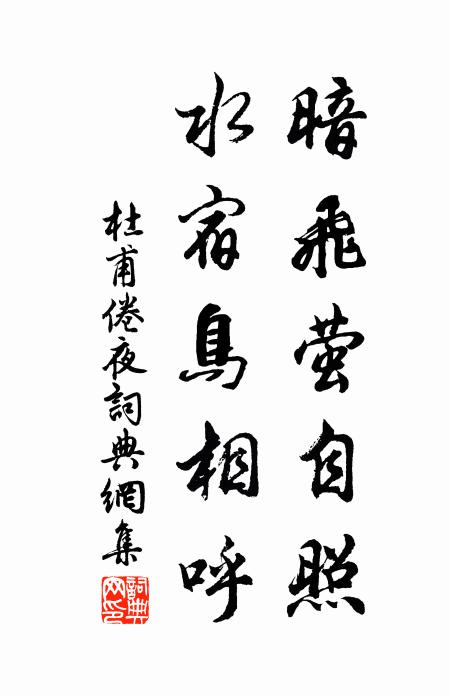 暗飛萤自照
水宿鳥相呼
杜甫倦夜詞典網集